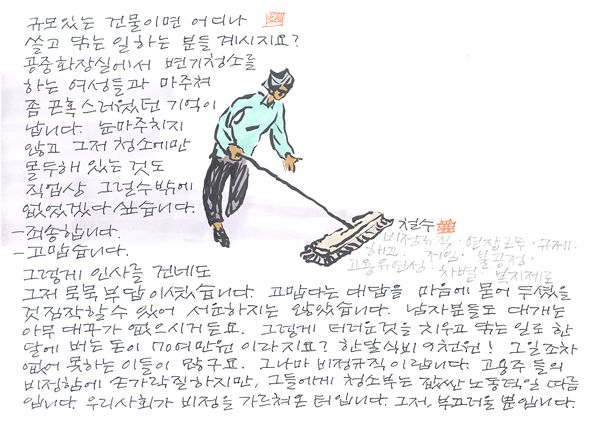 규모있는 건물이면 어디나
쓸고 닦는 일 하는 분들 계시지요?
공중화장실에서 변기청소를
하는 여성들과 마주쳐
좀 곤혹스러웠던 기억이
납니다. 눈마주치지
않고 그저 청소에만
몰두해 있는 것도
직업상 그럴수밖에
없었겠다 싶습니다.
-죄송합니다.
-고맙습니다.
그렇게 인사를 건네도
그저 묵묵부답이셨습니다. 고맙다는 대답을 마음에 묻어 두셨을
것 짐작할 수 있어 서운하지는 않았습니다. 남자분들도 대개는
아무 대꾸가 없으시거든요. 그렇게 더러운것을 치우고 닦는 일로 한
달에 버는 돈이 70여만원 이라지요? 한달식비 9천원! 그일조차
없어 못하는 이들이 많구요. 그나마 비정규직이랍니다. 고용주들의
비정함에 손가락질하지만, 그들에게 청소부는 값싼 노동력일 따름
입니다. 우리사회가 비정을 가르쳐온 터입니다. 그저, 부끄러울 뿐입니다.
철수
비정규직·연장근무·규제·
해고·저임·불공정·
고용유연성·차별·복지제로